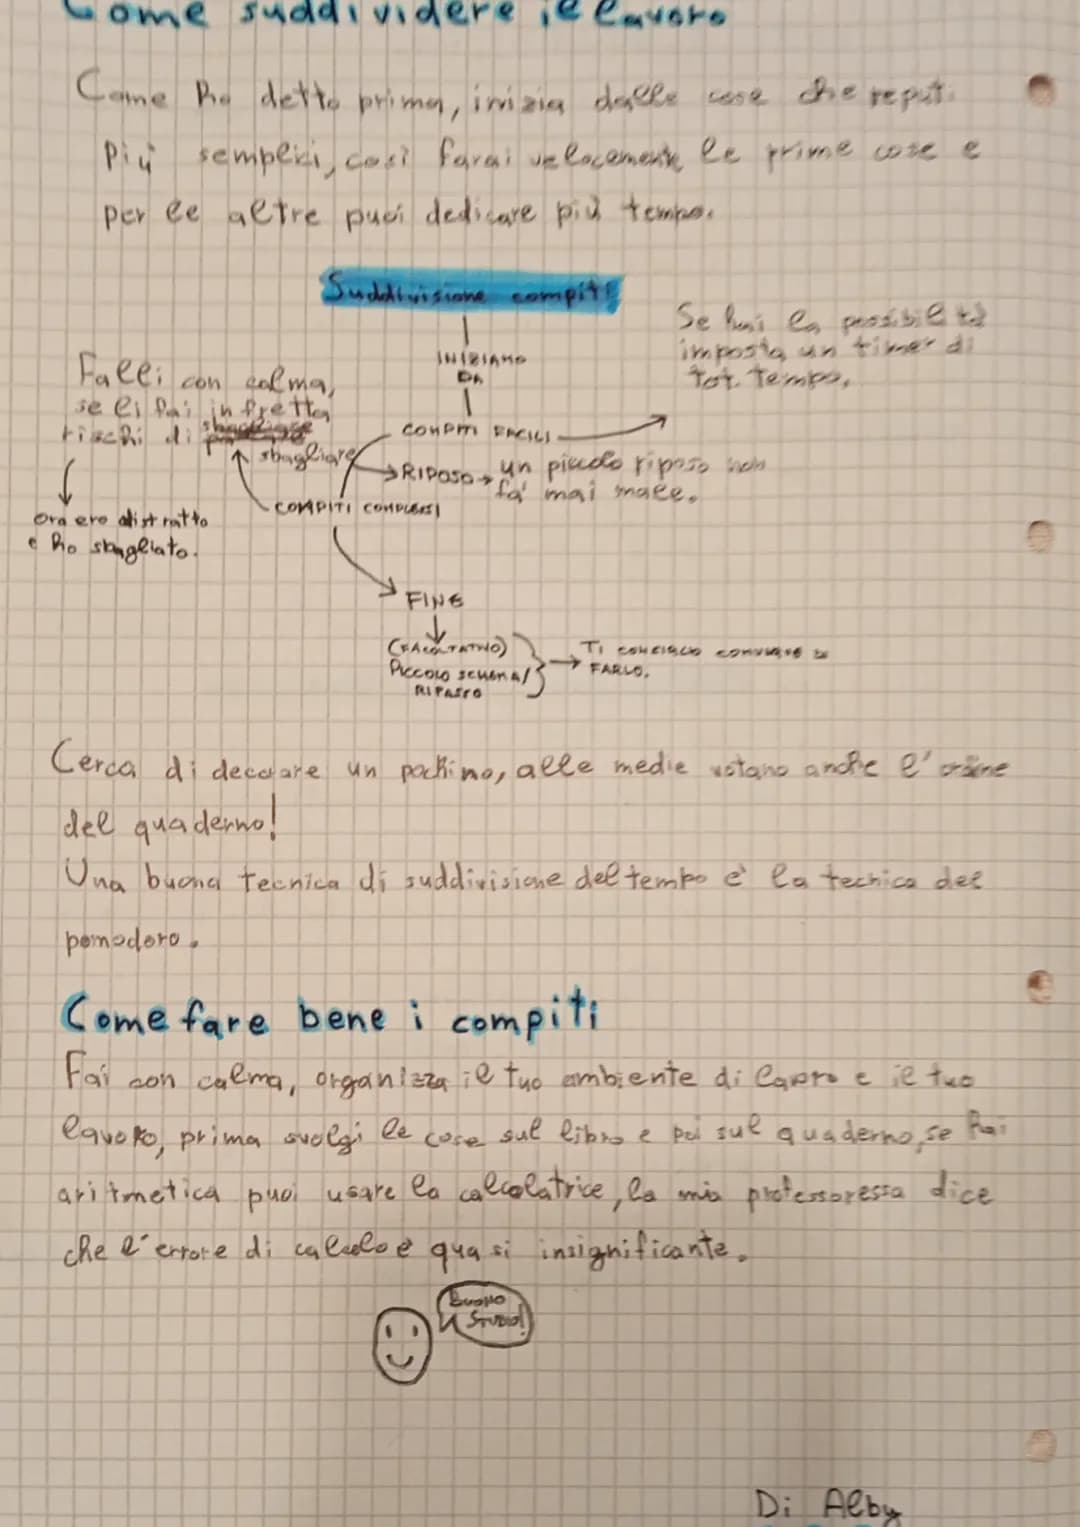 Come suddividere il lavoro
Come ho detto prima, inizia dalle cose che reputi
più semplici, così farai velocemente le prime cose e
per le altre puoi dedicare più tempo.
Suddivisione compiti
INIZIAMO
DA
Se hai la possibilità
imposta un timer di
tot. tempo.
Falli con calma,
se li fai in fretta
rischi di
sbagliare
COMPITI FACILI
RIPOSO → un piccolo riposo non
fa' mai male.
COMPITI COMPLESSI
Ora ero distratto
e ho sbagliato.
FINE
(FACOLTATIVO)
PICCOLO SCHEMA/
RIPASSO
TI CONSIGLIO COMUNQUE DI
FARLO.
Cerca di decorare un pochino, alle medie votano anche l'ordine
del quaderno!
Una buona tecnica di suddivisione del tempo è la tecnica del
pomodoro.
Come fare bene i compiti
Fai con calma, organizza il tuo ambiente di e il tuo
lavoro, prima svolgi le cose sul libro e poi sul quaderno, se hai
aritmetica puoi usare la calcolatrice, la mia professoressa dice
che l'errore di calcolo è quasi insignificante.
BUONO
STUDIO!
Di Alby